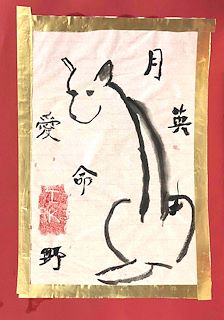 月
英
愛
命
野